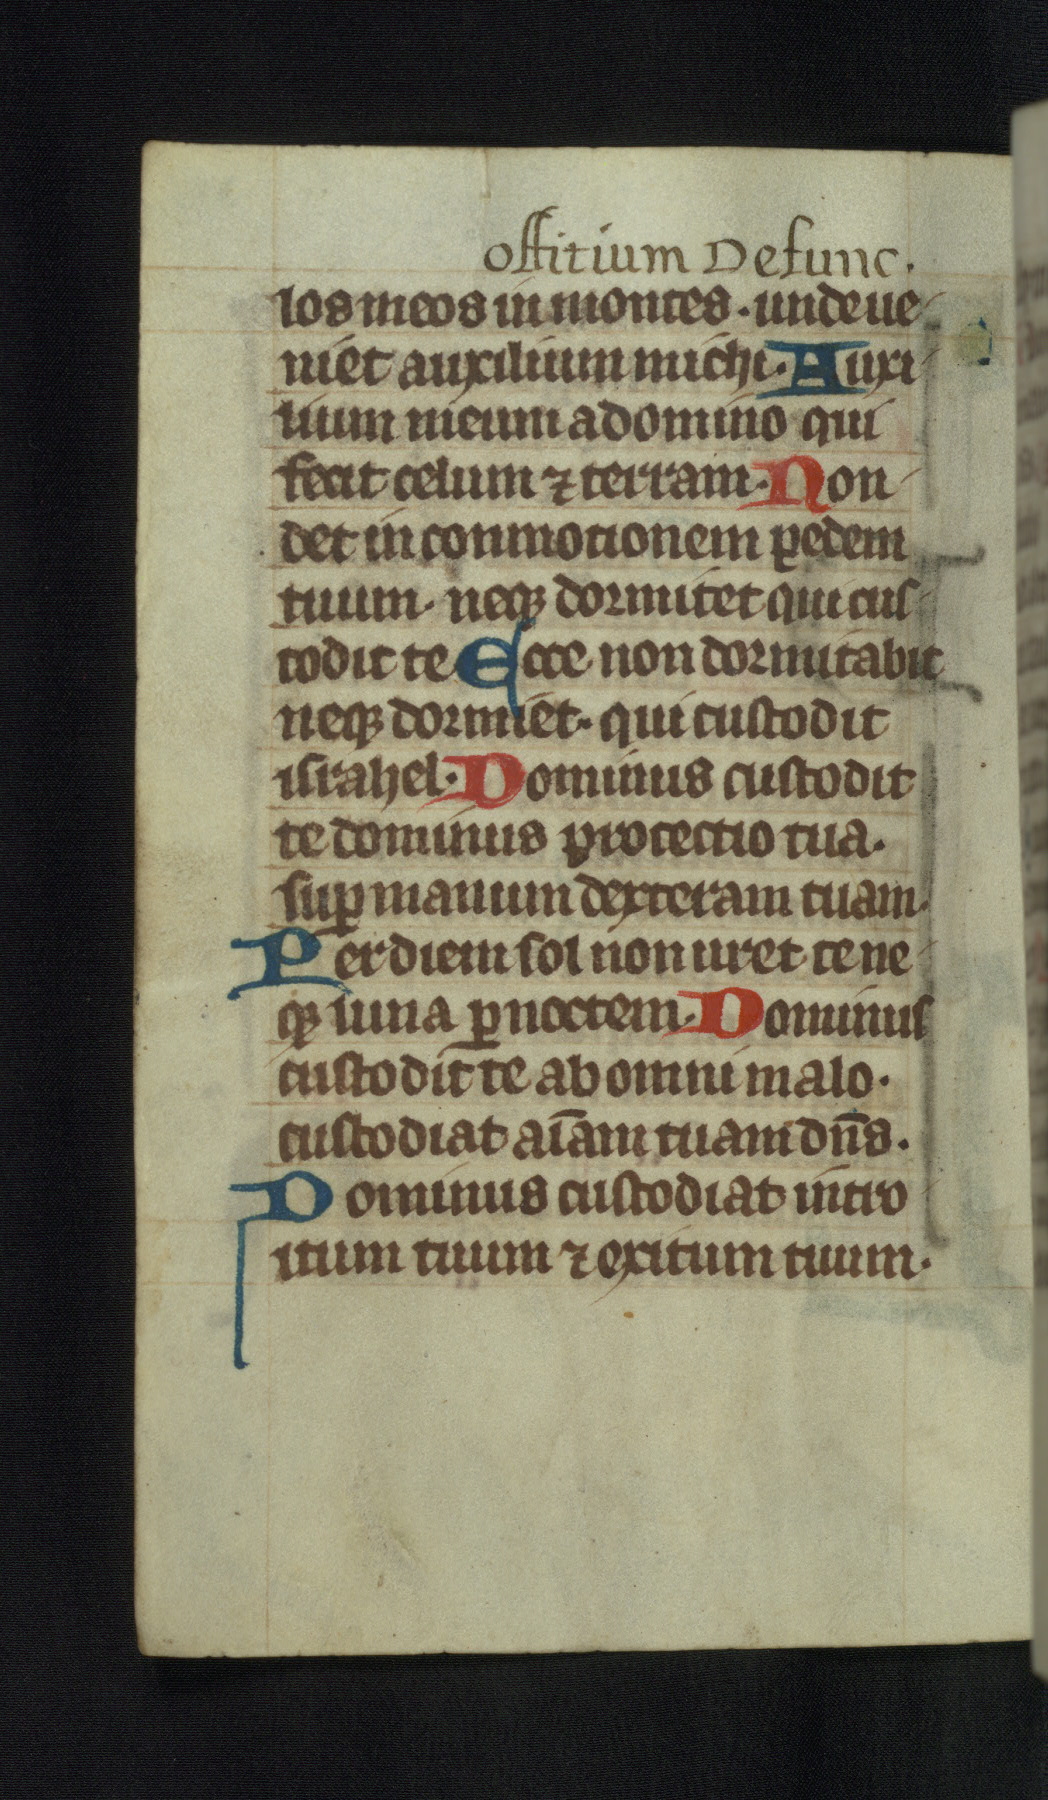 offitium Defunc.
los meos in montes. unde ue
niet auxilium michi. Auxi
lium meum a domino qui
fecit celum ⁊ terram. Non
det in conmotionem pedem
tuum. neqꝫ dormitet qui cus
todit te Ecce non dormitabit
neqꝫ dormiet. qui custodit
israhel. Dominus custodit
te dominus protectio tua.
suꝑ manum dexteram tuam.
Per diem sol non uret te ne
qꝫ luna ꝑ noctem. Dominus
custodit te ab omni malo.
custodiat aīam tuam dn̄s.
Dominus custodiat intro
itum tuum ⁊ exitum tuum.